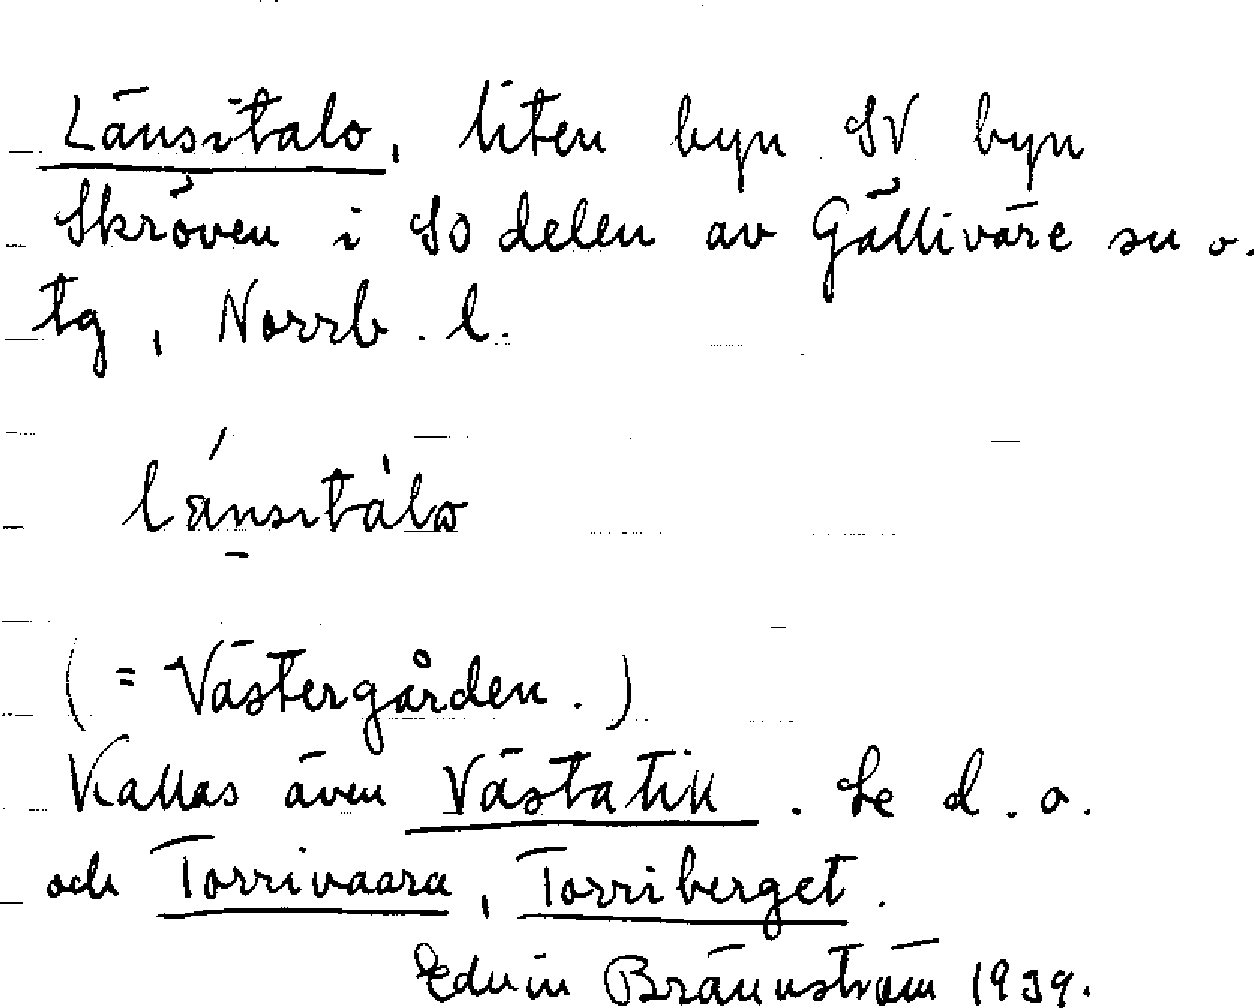 Länsitalo, liten byn SV byn
Skröven i SO delen av Gällivare sn o.
tg, Norrb. l.
länsitalo
(= Västergården.)
Kallas även Västatik. Se d. o.
och Torrivaara, Torriberget.
Edvin Brännström 1939.